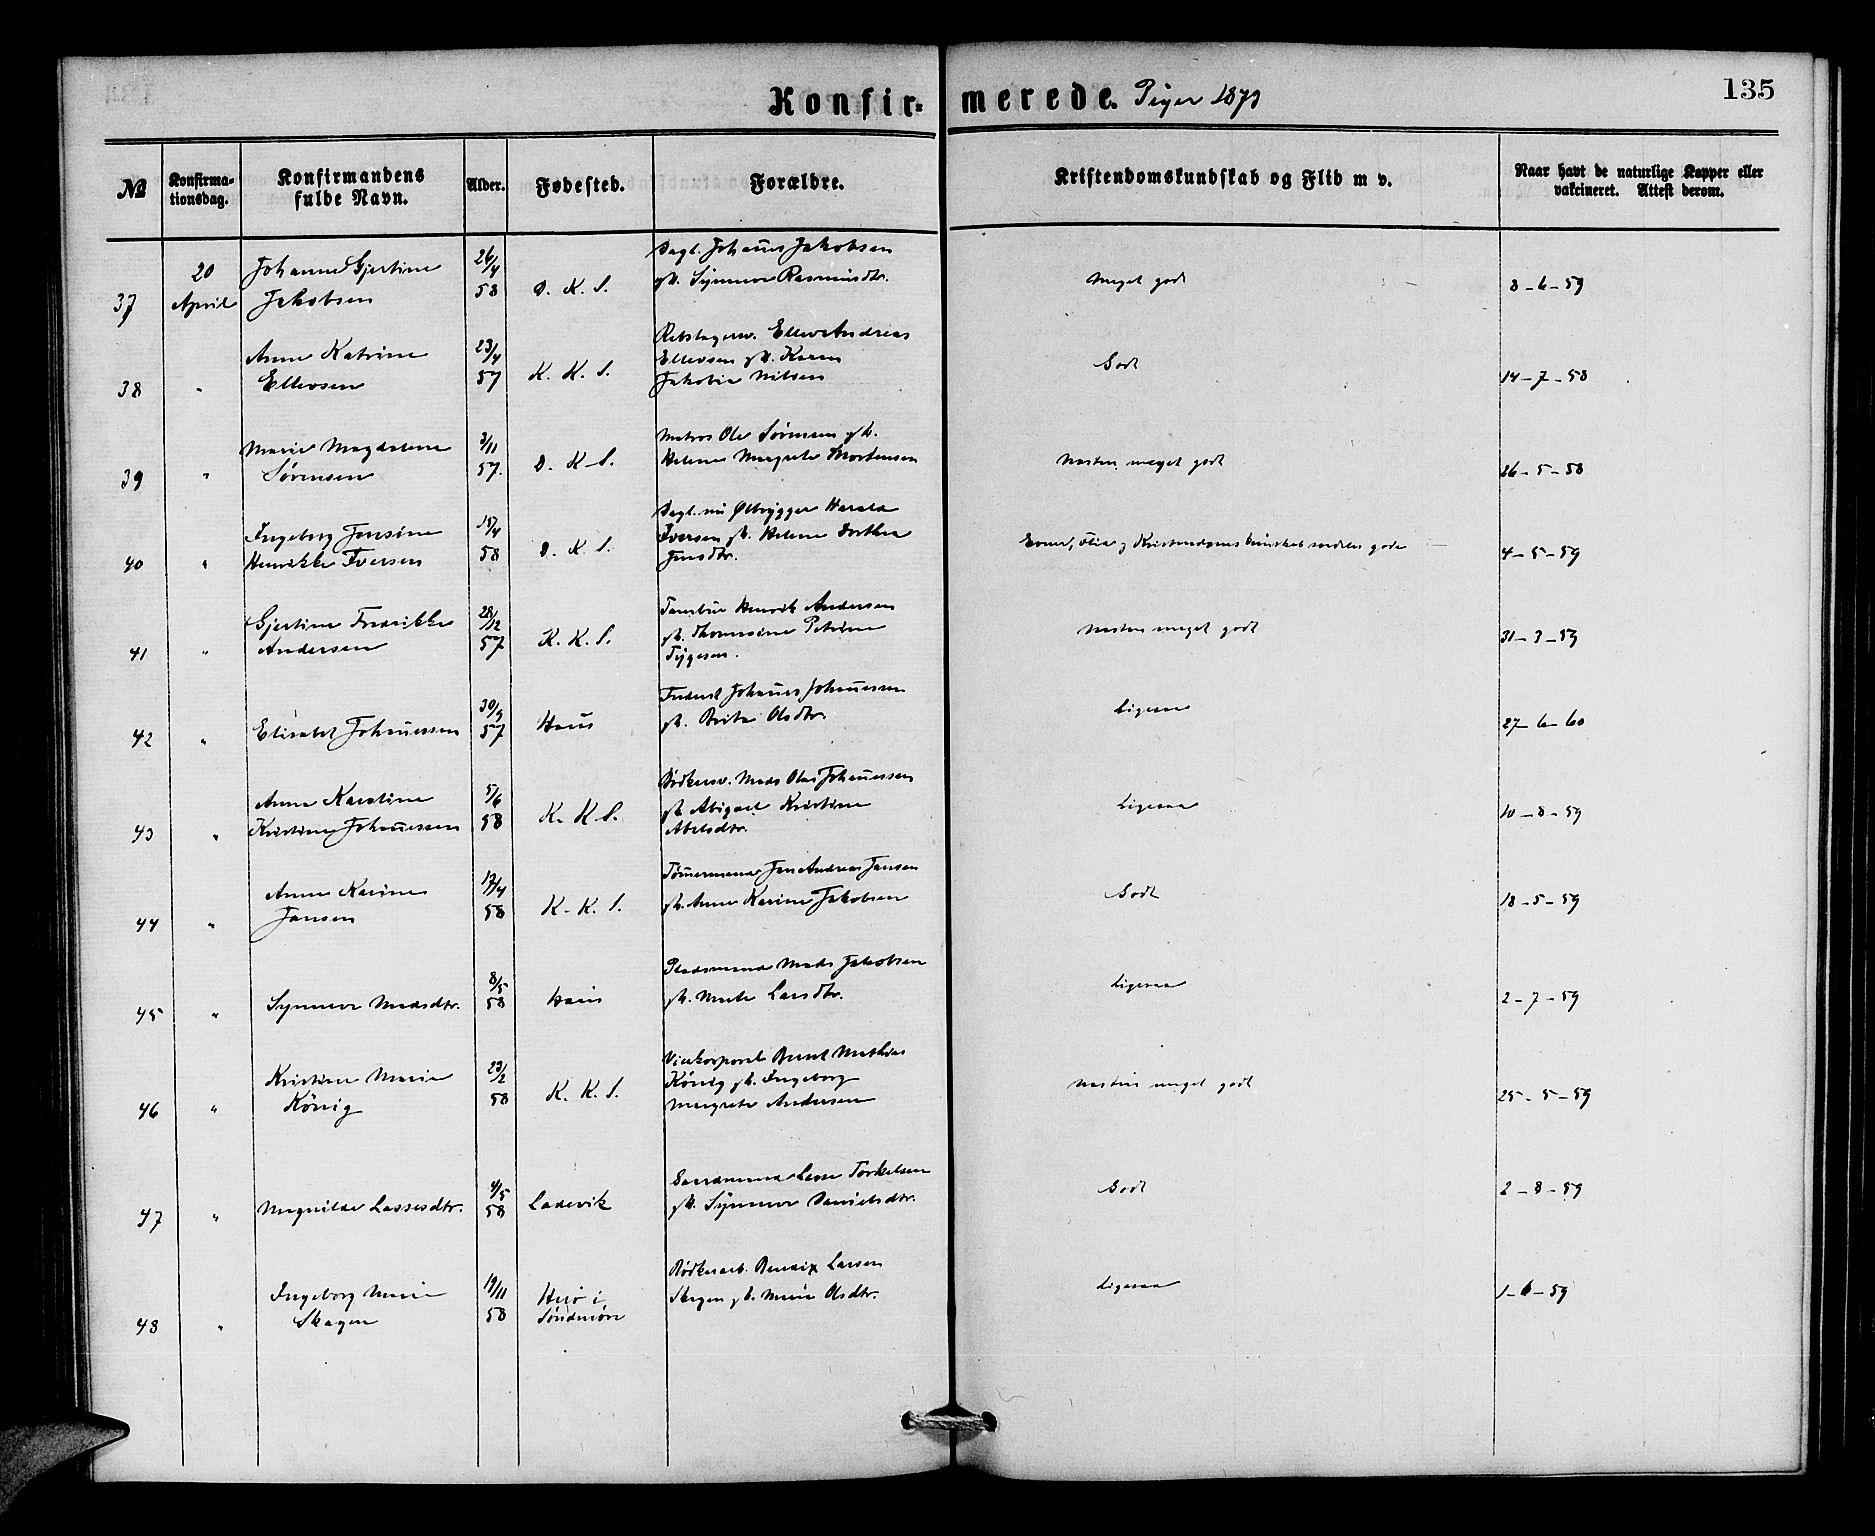 Konfirmerede. Piger 1873
135
№
Konfirma-
tionsdag.
Konfirmandens
fulde Navn.
Alder.
Fødested.
Forældre.
Kristendomskundskab og Flid m v.
Naar havt de naturlige Kopper eller
vakcineret. Attest derom.
37
20
April
Johanne Gjertine
Jakobsen
26/4
58
D. K. S.
Dagl. Johannes Jakobsen
gh. Synneve Rasmusdtr.
Meget godt
8-6-59
38
"
Anne Katrine
Ellevsen
23/4
57
K. K. S.
Rebslagersv. Ellev Andreas
Ellevsen gh. Karen
Jakobia Nilsen
Godt
14-7-58
39
"
Marie Magdalene
Sørensen
3/11
57.
D. K. S.
Matros Ole Sørensen gh.
Helene Margrete Mortensen
Næsten meget godt
26-5-58
40
"
Ingeborg Jensine
Henrikke Iversen
58
D. K. S.
Dagl. nu Ølbrygger Harald
Iversen gh. Helene Dorthea
Jensdtr.
Evner, Flid og Kristendomskundskab godt
4-5-59
41
"
Gjertine Fredrikke
Andersen
28/12
57
K. K. S.
Tambur Henrik Andersen
gh. Thomasine Petrine
Tygesen.
Næsten meget godt
31-3-59
42
"
Elisabet Johannessen
30/9
57
Haus
Johannes Johannessen
gh. Brita Olsdtr.
Ligesaa
27-6-60
43
"
Anne Karoline
Kristine Johannessen
5/6
58
K. K. S.
Bødkersv. Mads Olai Johannessen
gh. Abigael Kristine
Abelsdtr.
Ligesaa
10-8-59
44
"
Anne Karine
Jansen
17/4
58
K. K. S.
Tømmermand Jan Andreas Jansen
gh. Anne Karine Jakobsen
Godt
18-5-59
45
"
Synneve Madsdtr.
8/5
58
Haus
Pladsmand Mads Jakobsen
gh. Marte Larsdtr.
Ligesaa
2-7-59
46
"
Kristine Marie
König
23/2
58
K. K. S.
Vicekorporal Bernt Mathias
König gh. Ingeborg
Margrete Andersen
Næsten meget godt
25-5-59
47
"
Magnilde Lassesdtr.
4/5
58
Ladevik
Gaardmand Lasse Torkelsen
gh. Synneve Danielsdtr.
Godt
2-8-59
48
"
Ingeborg Marie
Skagen
19/11
58
Herø i
Søndmøre
Bødkerarb. Larsen
Skagen gh. Marie Olsdtr.
Ligesaa
1-6-59